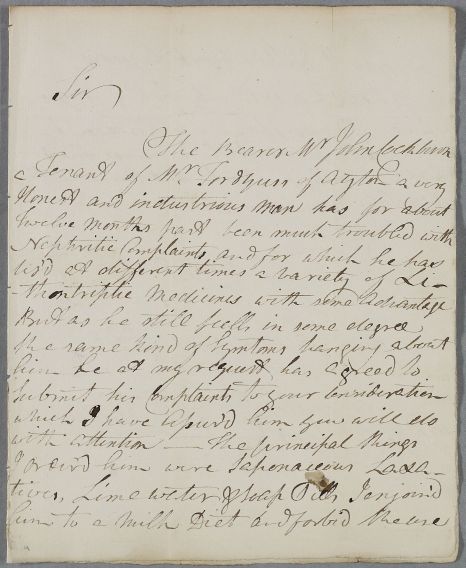 Sir
The Bearer Mr John Cockburn
a Tenant of Mr Fordyces of Ayton a very
Honest and industrious man has for about
twelve months past been much troubled with
Nephritic Complaints, and for which he has
us'd at different times a variety of Li-
thontriptic Medicines with some advantage
But as he still feels in some degree
the same kind of symtoms hanging about
him he at my request, has agreed to
Submit his Complaints to your Consideration
which I have assur'd him you will do
with attention — The principal things
I order'd him were Saponaceous Laxa-
tives, Lime water & Soap Pills I enjoin'd
him to a Milk Diet and forbid the use